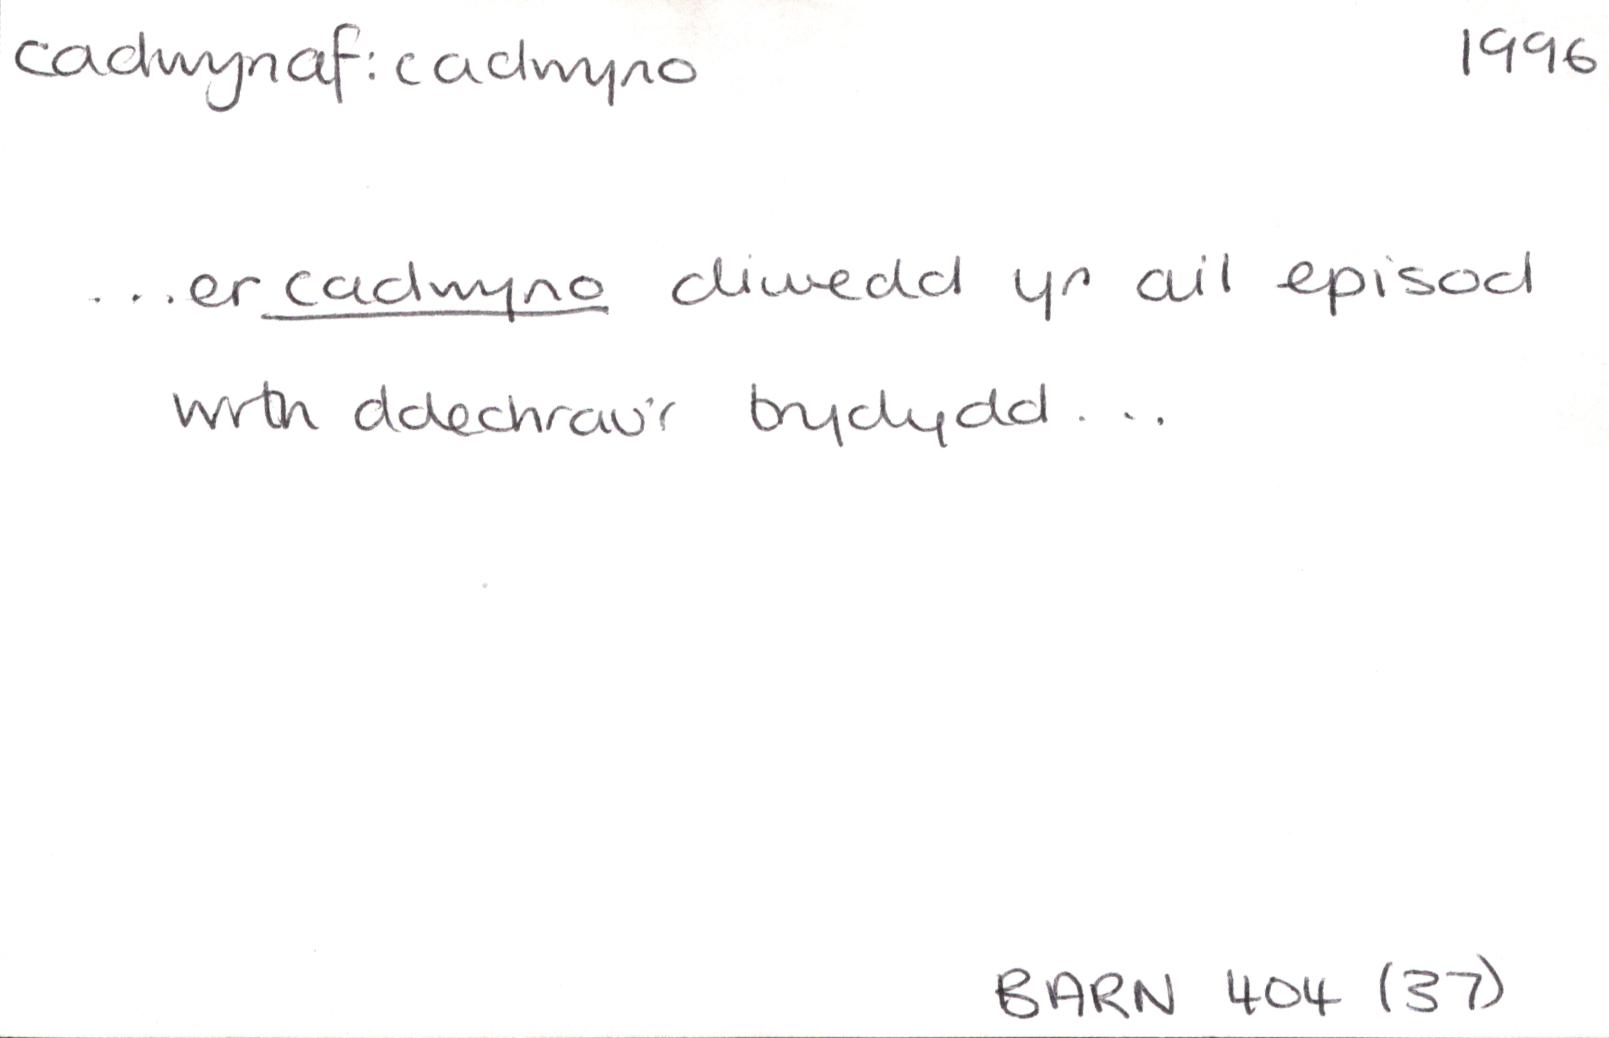 cadwynaf: cadwyno 1996
...er cadwyno diwedd yr ail episod
wrth ddechrau'r trydydd...
BARN 404 (37)